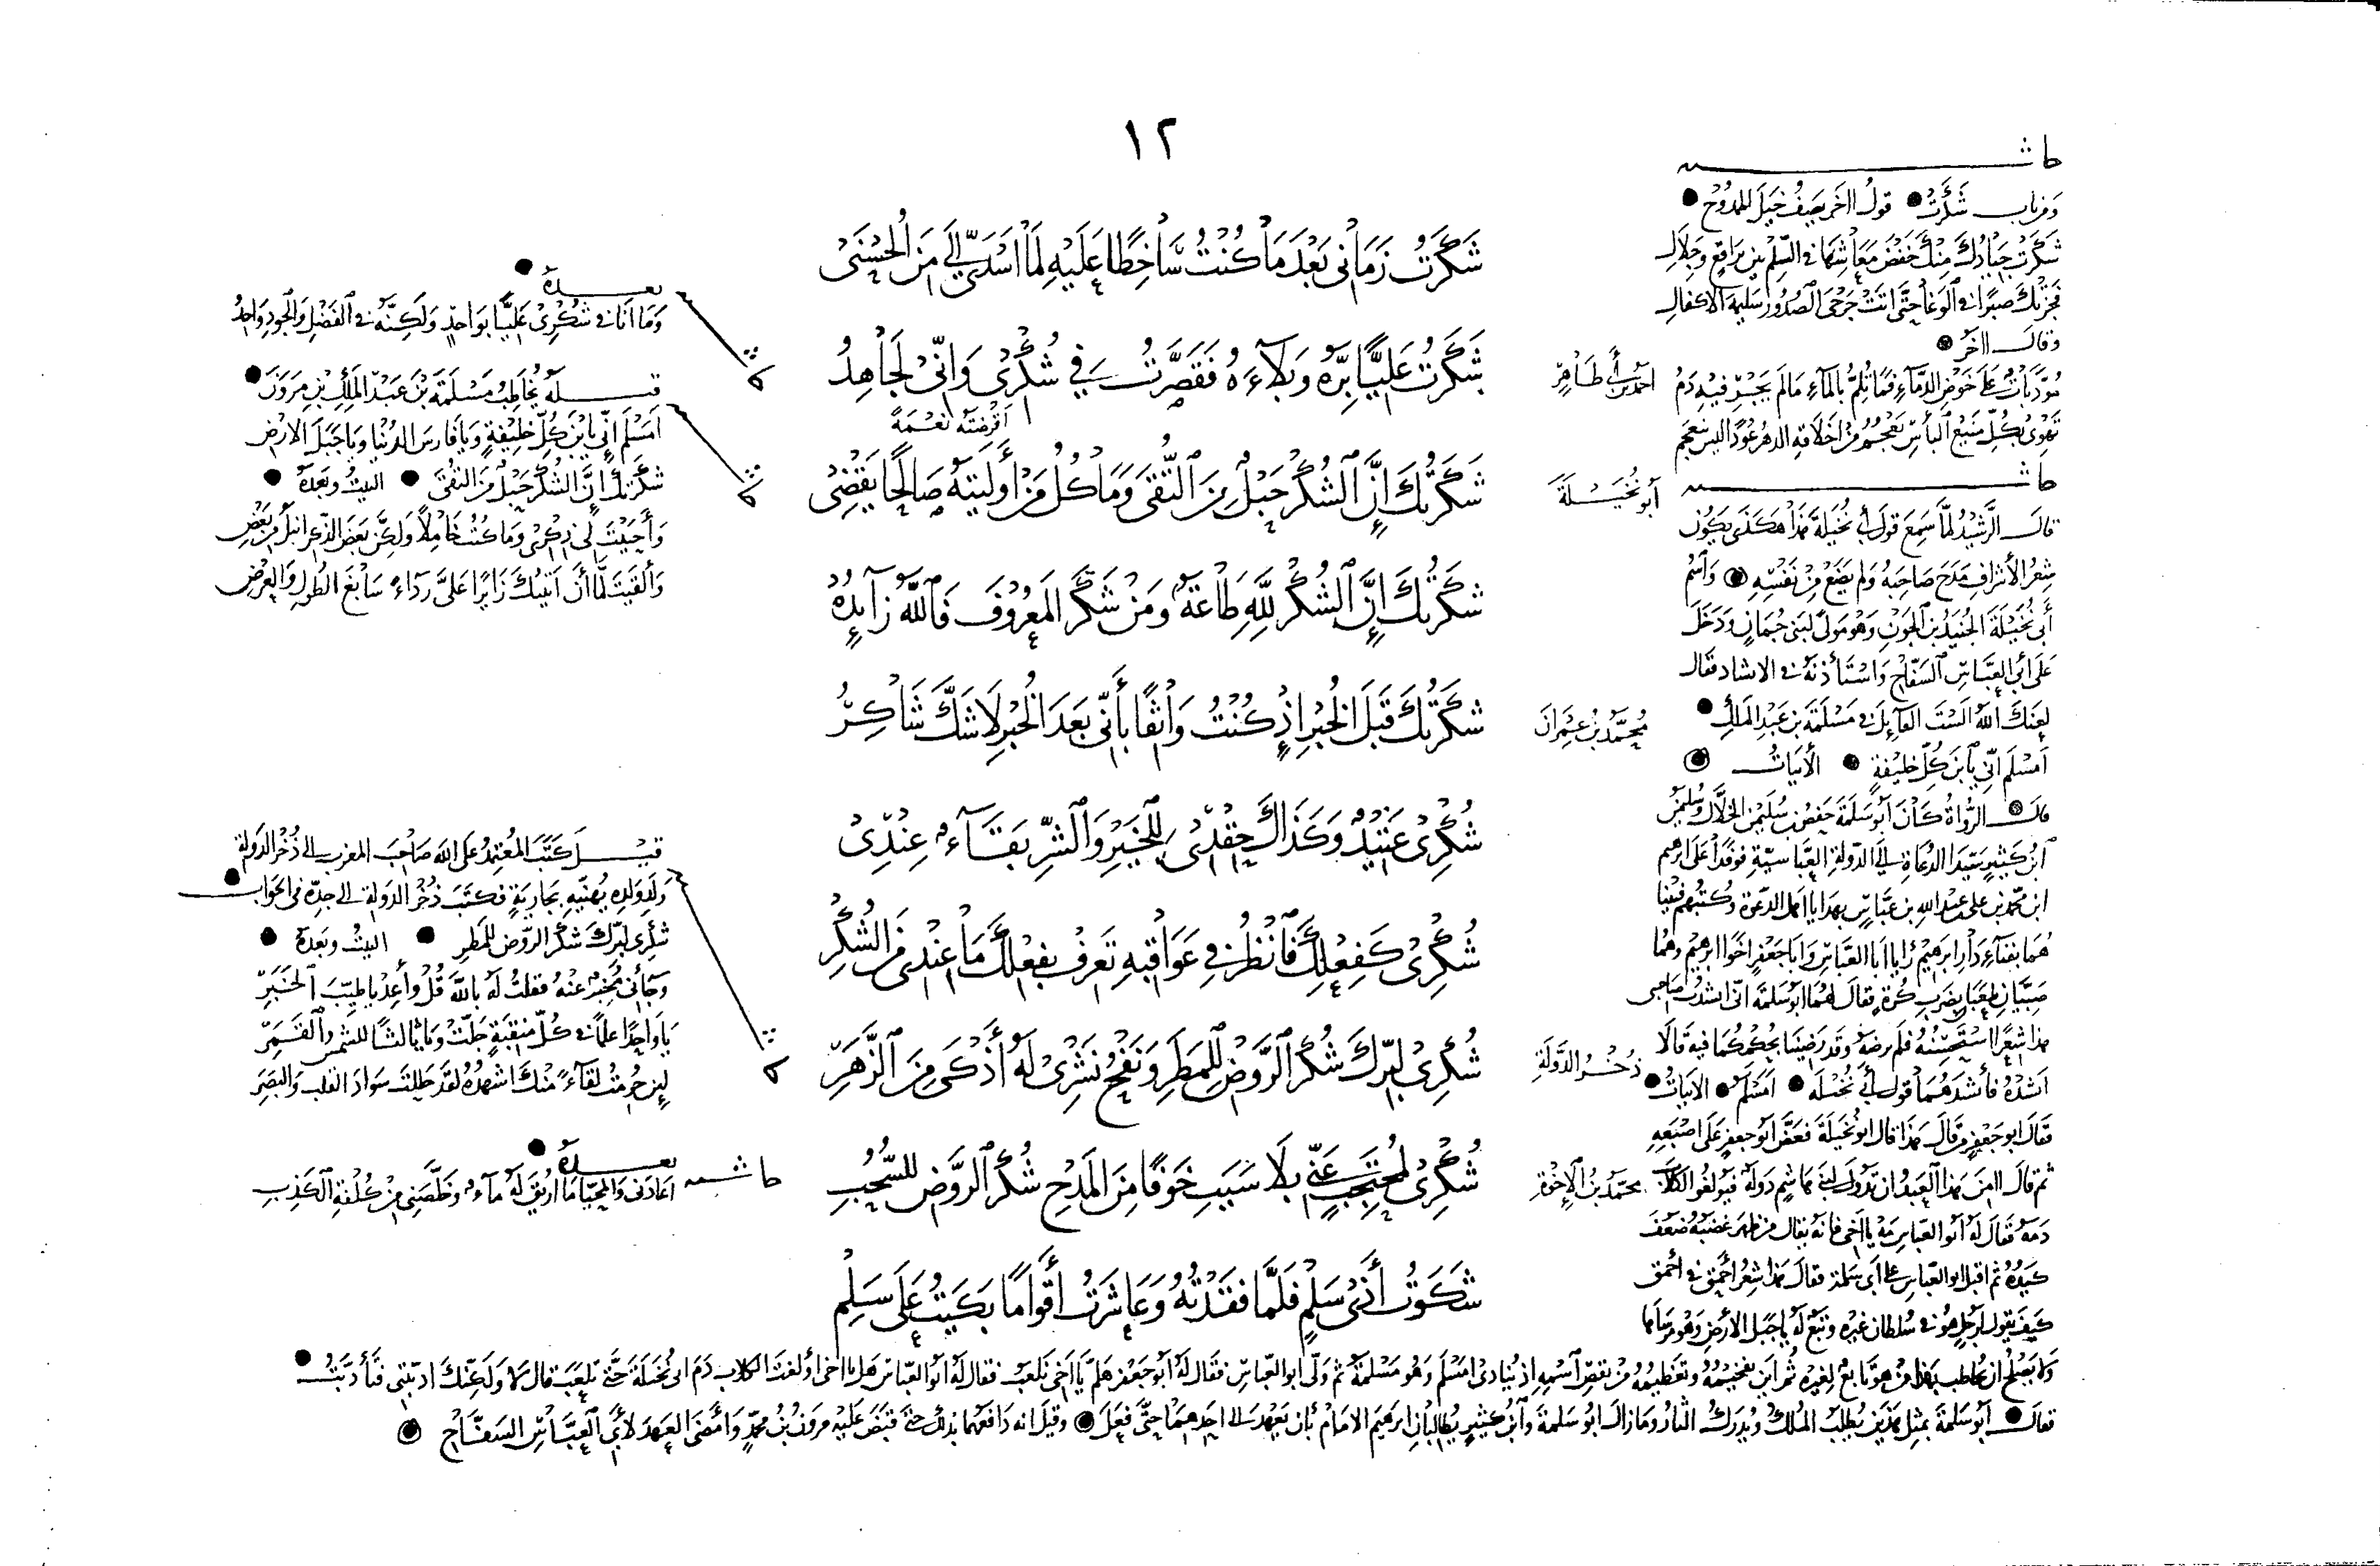 ١٢
حاشية
ومن باب شكرت قول الآخر يصف خيل الممدوح
شكرت جيادك منك خفض معاشها في السلم بين براقع وجلال
فجزتك صبرا في الوغا حتى انثنت جرحى الصدور سليمة الاكفال
وقال آخر
معودات على خوض الدماء فما تلم بالماء ما لم يجر فيه دم
تهوى بكل منيع البأس
حاشية
قال الرشيد لما سمع قول أبي نخيلة هذا هكذى يكون
شعر الأشراف مدح صاحبه ولم يضع من نفسه واسم
أبي نخيلة الجنيد بن الجون وهو مولى لبني حمان ودخل
على أبي العباس السفاح واستأذنه في الانشاد فقال
لعنك الله ألست القايل في مسلمة بن عبد الملك
أمسلم إني يا بن كل خليفة الأبيات
قال الرواة كان أبو سلمة حفص بن سليمن الخلال وسليمن
ابن كثير سيدا الدعاة إلى الدولة العباسية فوفدا على ابرهيم
ابن محمد بن على عبد الله بن عباس بهدايا اهل الدعوة وكتبهم فبينا
هما بفناء دار ابرهيم رايا ابا العباس وابا جعفر اخوا ابرهيم وهما
صبيان يلعبا بضرب كرة فقال لهما ابو سلمة انى انشدت صاحبى
هذا شعرا استحسنته فلم يرضه وقد رضينا بحكمكما فيه قالا
انشده فأنشدهما قول أبي نخيلة أمسلم الأبيات
فقال ابو جعفر من قال هذا قال ابو نخيلة فعض ابو جعفر على اصبعه
ثم قال أأمن هذا العبد ان تدول لبنى هاشم دولة فيولغوا الكلاب
دمه فقال له ابو العباس مه يا اخى فانه يقال من ظهر غضبه ضعف
كيده ثم اقبل ابو العباس على ابى سلمة فقال هذا شعر أحمق في احمق
كيف يقول لرجل هو في سلطان غيره وتبع له يا جبل الأرض وهو مرساها
شكرت زماني بعد ما كنت ساخطا عليه لما اسدى إلي من الحسنى
أحمد بن أبي طاهر شكرت عليا بره وبلاءه فقصرت في شكرى وانى لجاهد
أقرضته نعمة
أبو نخيلة شكرتك إن الشكر حبل من التقى وما كل من أوليته صالحا يقضى
شكرتك إن الشكر لله طاعة ومن شكر المعروف فالله زايده
محمد بن عمران شكرتك قبل الخبر إذ كنت واثقا بأني بعد الخبر لا شك شاكر
شكرى عتيد وكذاك حقدى للخير والشر بقاء عندى
شكرى كفعلك فانظر في عواقبه تعرف بفعلك ما عندى من الشكر
ذخر الدولة شكرى لبرك شكر الروض للمطر ونفح نشرى له أذكى من الزهر
محمد بن الإخوة شكرى لمحتجب عنى بلا سبب خوفا من المدح شكر الروض للسحب
شكوت أذى سلم فلما فقدته وعاشرت أقواما بكيت على سلم
بعده
وما انا في شكرى عليا بواحد ولكنه في الفضل والجود واحد
قبله يخاطب مسلمة بن عبد الملك بن مروان
امسلم إني يا بن كل خليفة ويا فارس الدنيا ويا جبل الارض
شكرتك إن الشكر حبل من التقى البيت وبعده
وأحييت لى ذكرى وما كنت خاملا ولكن بعض الذكر انبه من بعض
وألقيت لما أن أتيتك زايرا على رداء سابغ الطول والعرض
قيل كتب المعتمد على الله صاحب المغرب الى ذخر الدولة
ولد ولده يهنيه بجارية فكتب ذخر الدولة الى جده في الجواب
شكرى لبرك شكر الروض للمطر البيت وبعده
وجاءني مخبر عنه فقلت له بالله قل وأعد يا طيب الخبر
يا واحدا علما في كل منقبة جلت ويا ثالثا للشمس والقمر
لين حرمت لقاء منك اشهده لقد حللت سواد القلب والبصر
بعده
حاشية اعادنى والمحيا ما أريق له ماء وخلصنى من كلفة الكذب
ولا يصلح ان يخاطب بهذا من هو تابع لغيره ثم أين تفخيمه وتعظيمه من نقص اسمه إذ ينادى امسلم وهو مسلمة ثم ولى ابو العباس فقال له أبو جعفر هلم يا اخى نلعب فقال له ابو العباس هل يا اخى اولغت الكلاب دم ابى نخيلة حتى تلعب قال لا ولكنك ادبتنى فتأدبت
فقال ابو سلمة بمثل هذين يطلب الملك ويدرك الثار وما زال ابو سلمة وابن كثير يطالبان ابرهيم الامام بأن يعهد الى احدهما حتى فعل وقيل انه دافعهما بذلك حتى قبض عليه مرون بن محمد وأمضى العهد لأبي العباس السفاح